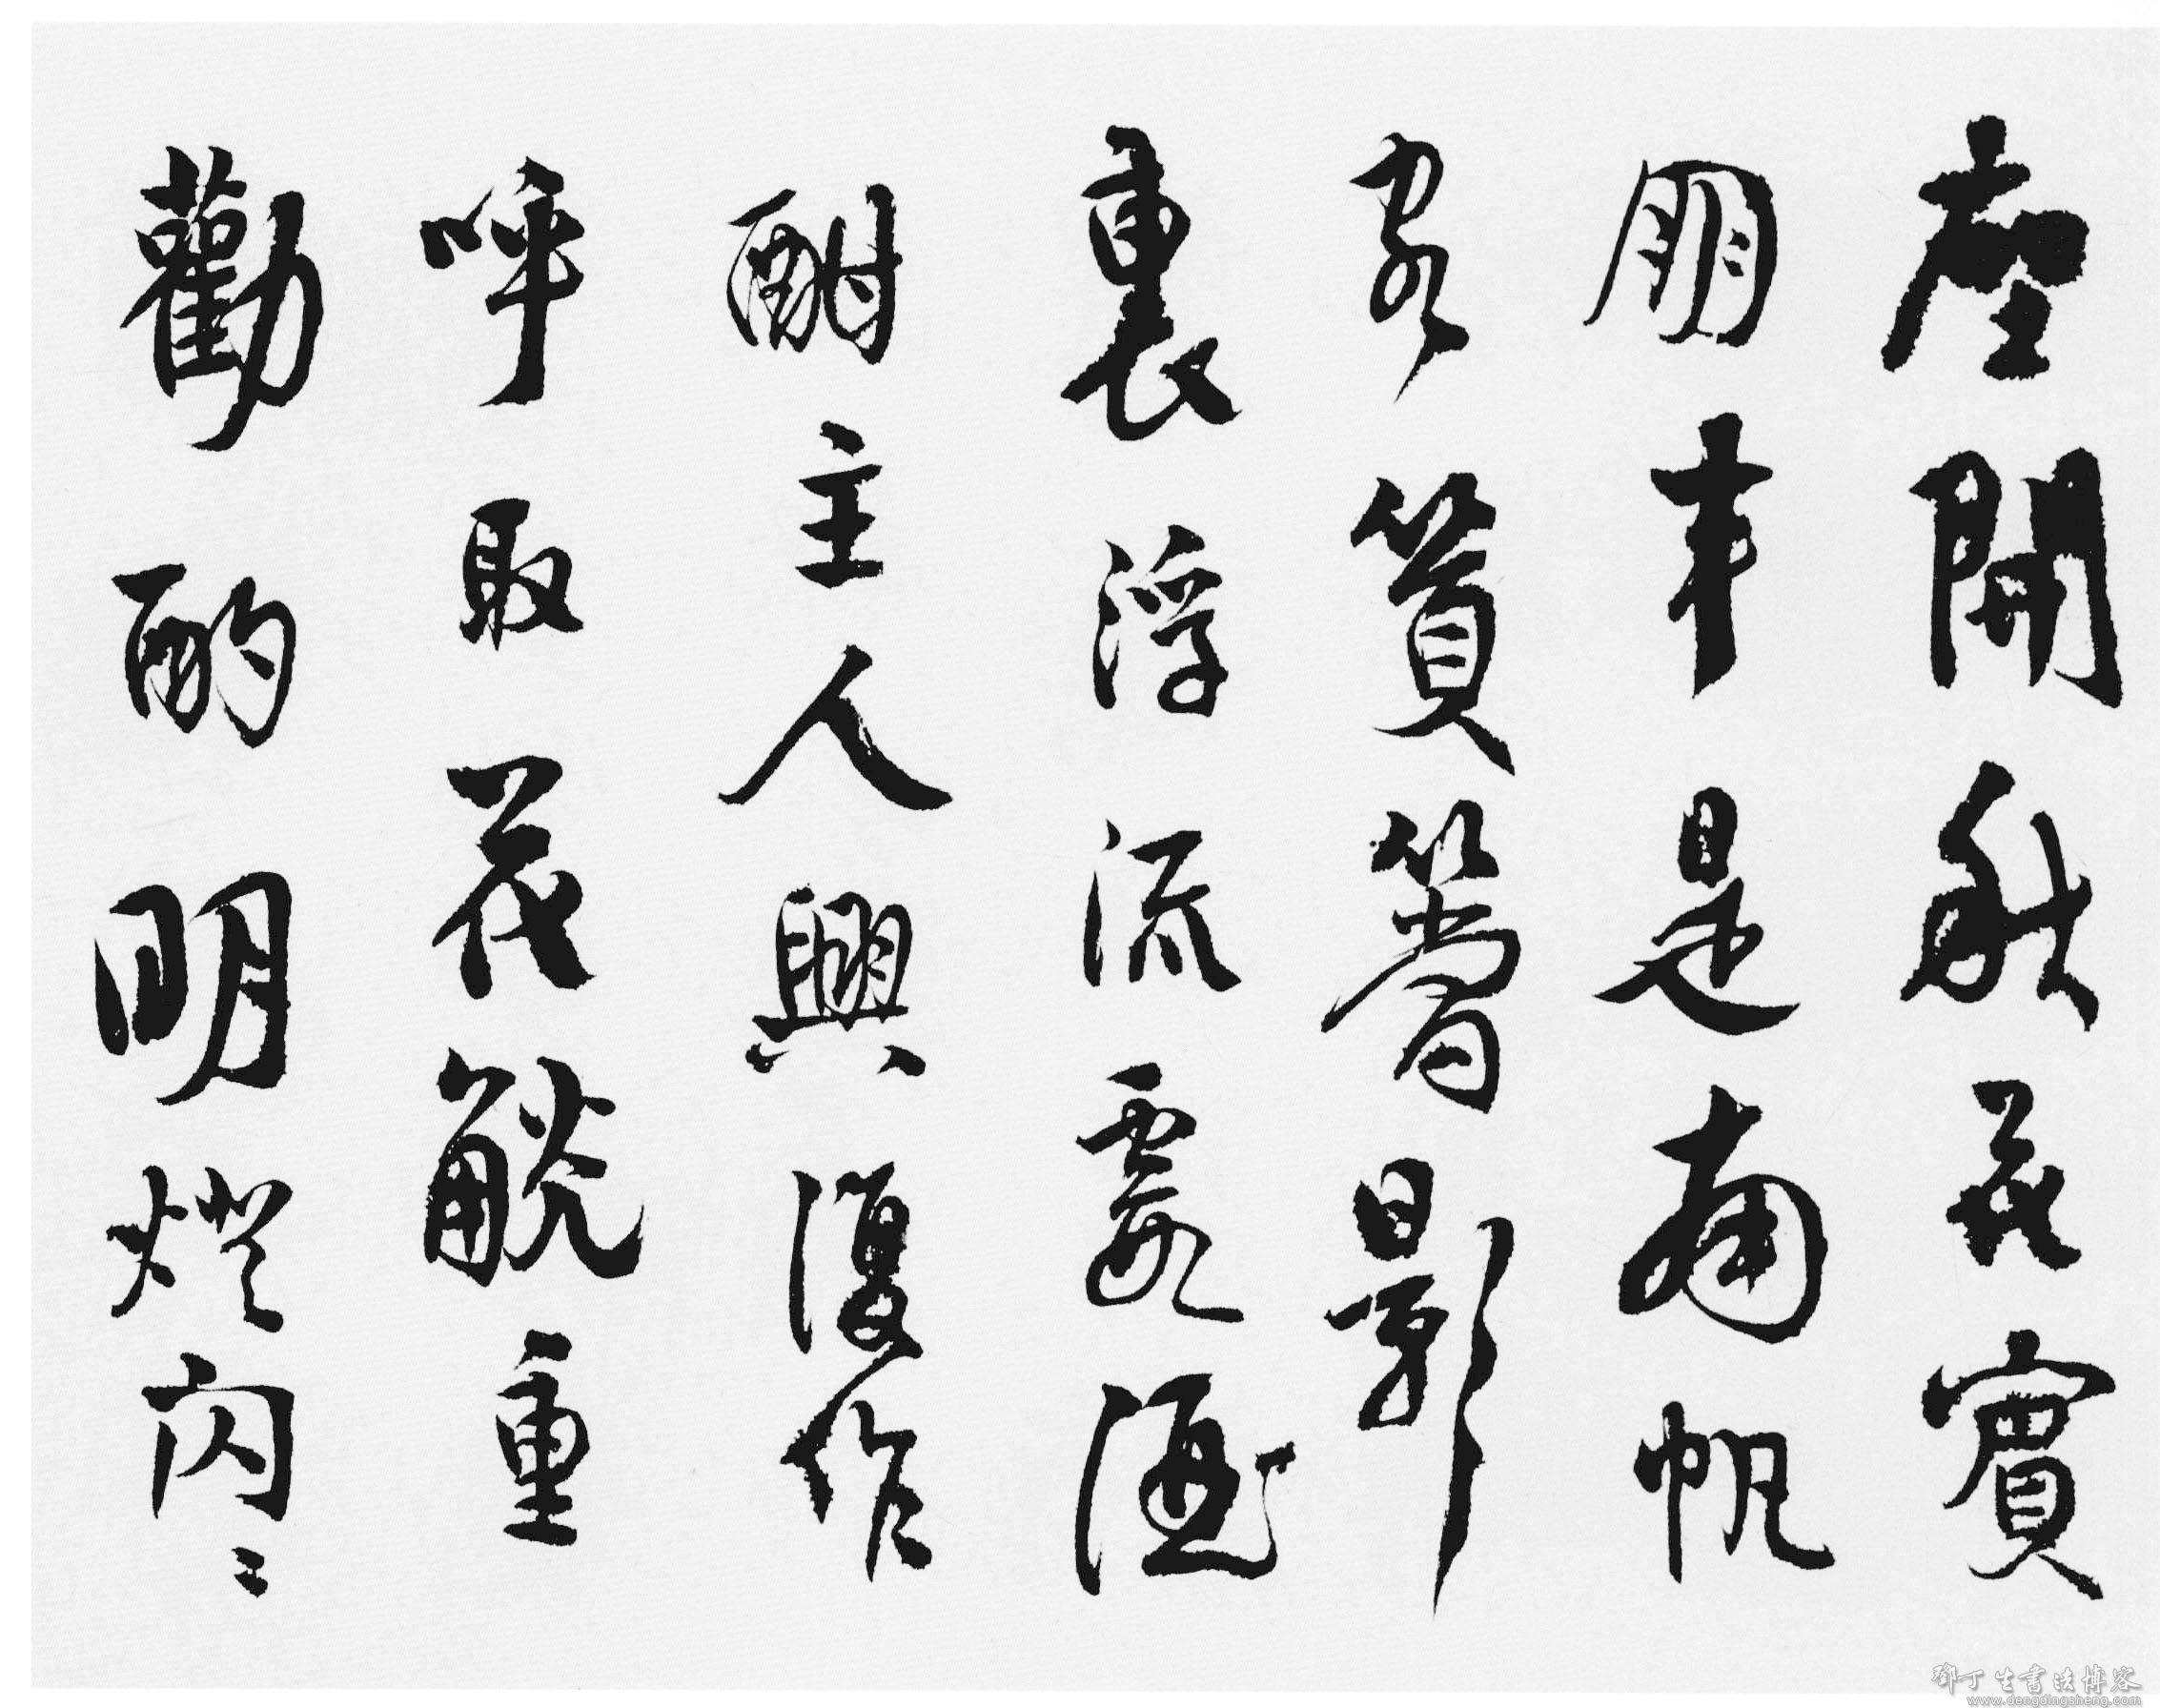 座開秋賓
朋半是南帆
客篔簹影
裏浮流霞酒
酣主人興復作
呼取花觥重
勸酌明燈閃〻
鄧丁生書法博客
www.dengdingsheng.com